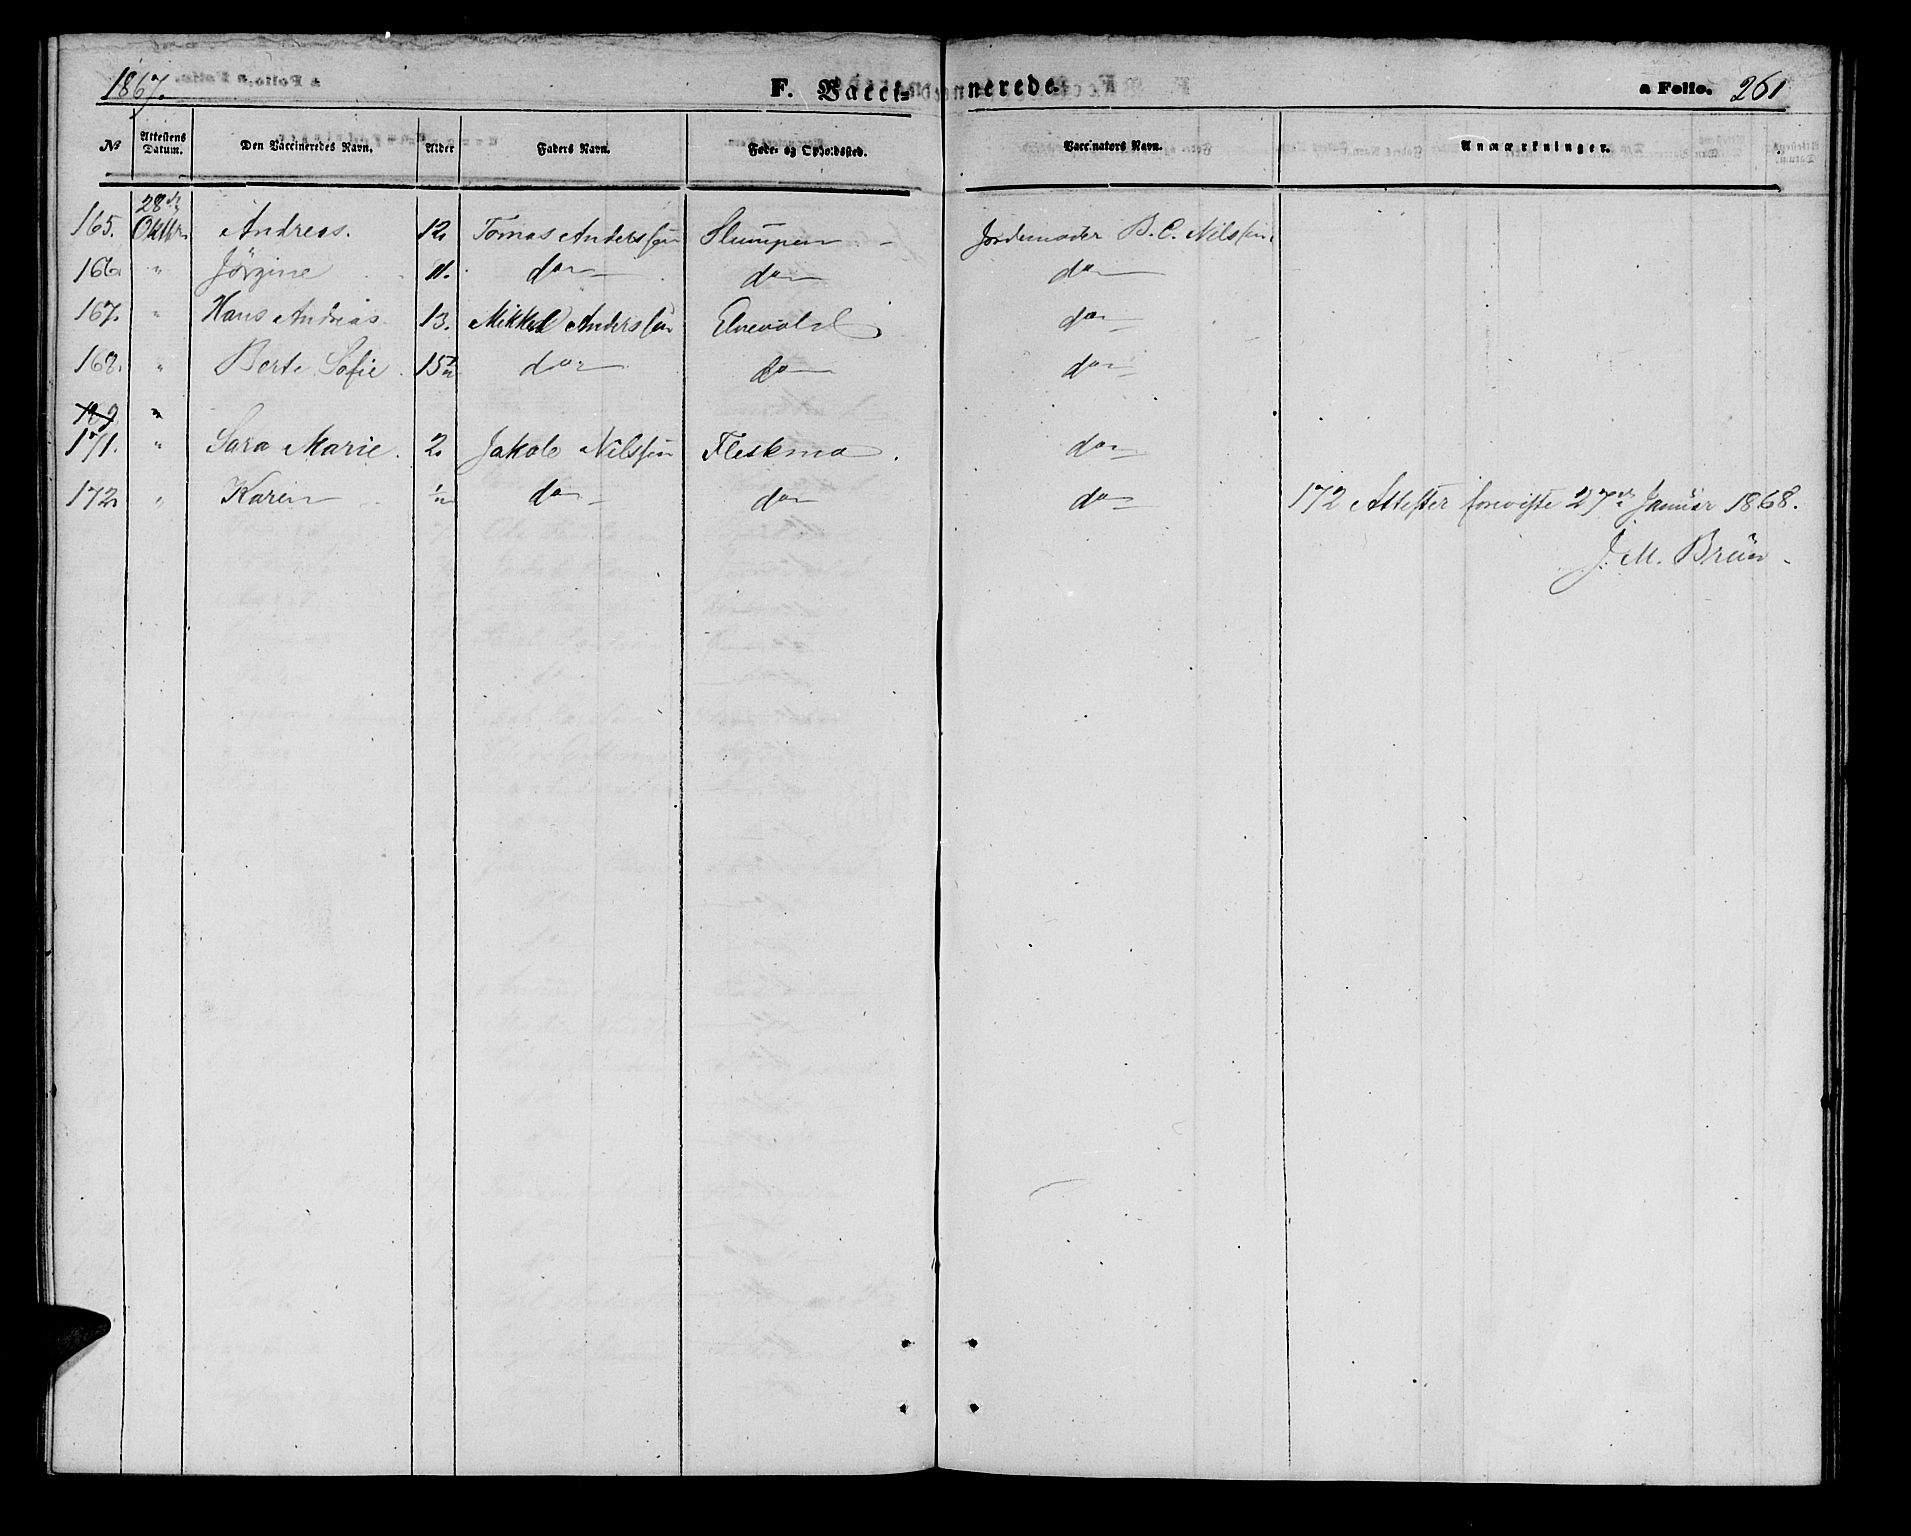 1867. F. Vacci- nerede. a Folio. 261
No Attestens Datum. Den Vaccineredes Navn. Alder Faders Navn. Føde- og Opholdssted. Vaccinators Navn. Anmærkninger.
28de
165. Oktbr. Andreas. 12. Tomas Anderssøn Slumpen Jordemoder B. C. Nilssen.
166. " Jørgine 11. do do do
167. " Hans Andreas. 13. Mikkel Anderssøn Elvevold do
168. " Berte Sofie. 15 do do do
169 "
171. " Sara Marie. 2. Jakob Nilssøn Fleskmo. do
172. " Karen do do do 172 Attester foreviste 27de Januar 1868.
J. M. Brun